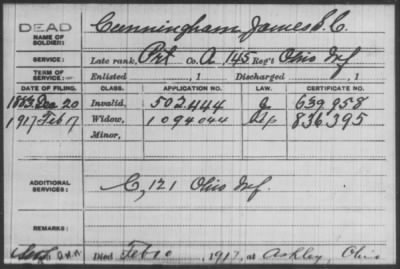 DEAD Cunningham, James S. C.
NAME OF SOLDIER:
SERVICE: Late rank, Prt Co. A, 145 Reg't Ohio Inf
TERM OF SERVICE: Enlisted , 1 Discharged , 1
DATE OF FILING. CLASS. APPLICATION NO. LAW. CERTIFICATE NO.
1883 Dec 20 Invalid, 502.444 639.958
1917 Feb 17 Widow, 1094044 836.395
Minor,
ADDITIONAL SERVICES: C, 121 Ohio Inf.
REMARKS:
Died Feb 10, 1917, at Ashley, Ohio